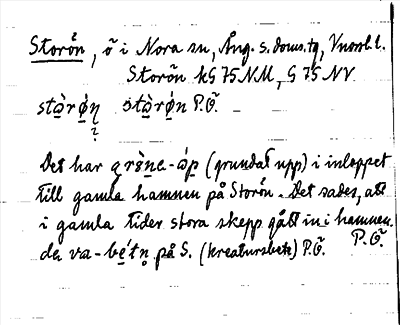 Storön, ö i Nora sn, Ång. s. doms. tg, Vnorrl. l.
Storön kG 75 NM, G 75 NV
stạ̀rǿ̣ṇ stạ̀rǿ̣n P.Ö.
Det har (grundat upp) i inloppet
till gamla hamnen på Storön. Det sades, att
i gamla tider stora skepp gått in i hamnen.
P.Ö.
da va-bẹ́tn̥ på S. (kreatursbete) P.Ö.